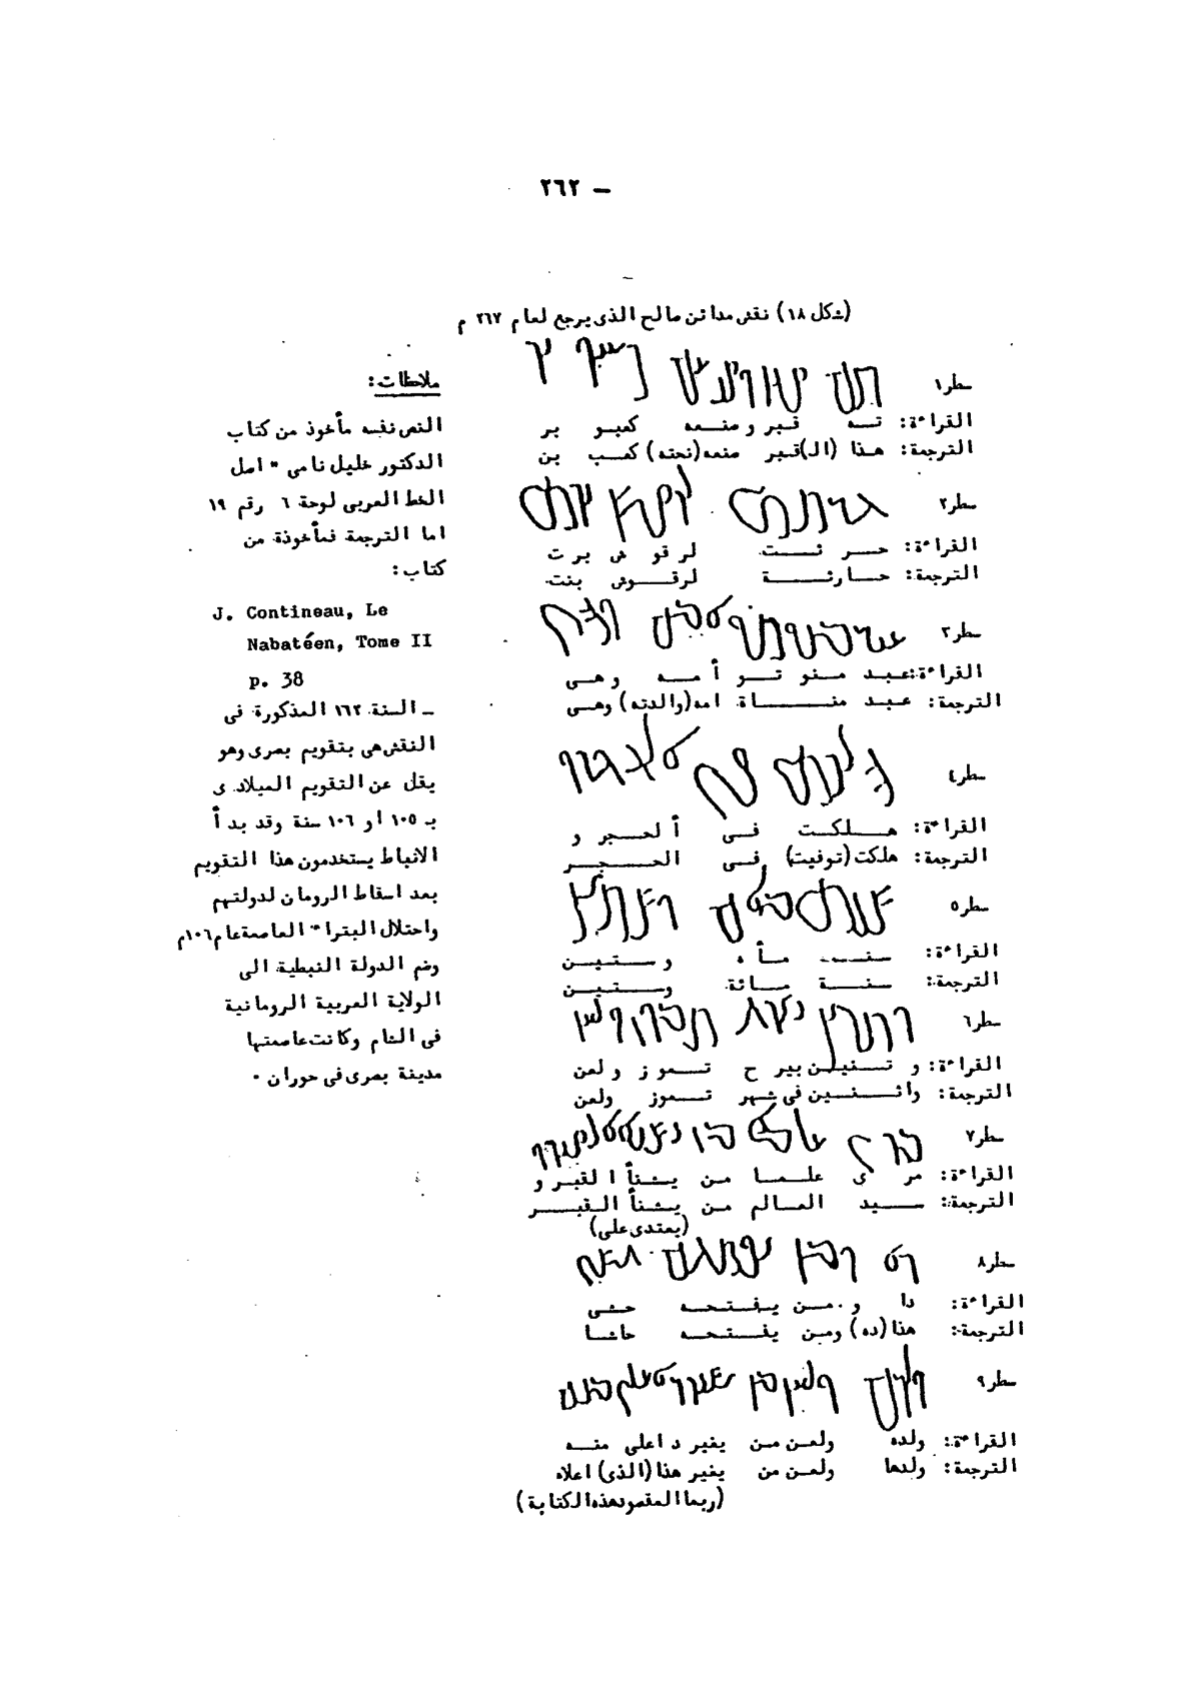 ٢٦٢ –
(شكل ١٨) نقش مدائن صالح الذى يرجع لعام ٢٦٧ م
سطر١
القراءة: تـه قبر و صنعه كعبو بر
الترجمة: هذا (الـ)قبر صنعه (نحته) كعب بن
سطر٢
القراءة: حـر ثـت لر قو ش بر ت
الترجمة: حـارثـة لرقـوش بنت
سطر٣
القراءة: عبد منو تـو أ مـه و هـى
الترجمة: عبد منـاة امه (والدته) وهى
سطر٤
القراءة: هـلكـت فـى ألحـجر و
الترجمة: هلكت (توفيت) فـى الحـجـر
سطر٥
القراءة: سنـت مـأ ه و ستيـن
الترجمة: سنـة مـائة وستيـن
سطر٦
القراءة: و تـنيـن بير ح تـمو ز و لعن
الترجمة: واثـنـين فى شهر تـموز ولعن
سطر٧
القراءة: مر ى علـمـا مـن يشنأ ا لقبر و
الترجمة: سـيد العـالم مـن يشنأ القبـر
(يعتدى على)
سطر٨
القراءة: دا و مـن يفـتحـه حشى
الترجمة: هذا (ده) ومن يفـتحـه حاشا
سطر٩
القراءة: ولده ولعـن مـن يغير د اعلى منـه
الترجمة: ولدها ولعـن من يغير هذا (الذى) اعلاه
(ربما المقصود هذه الكتابة)
ملاحظات:
النص نفسه مأخوذ من كتاب
الدكتور خليل نامى " اصل
الخط العربى لوحة ٦ رقم ١٩
اما الترجمة فمأخوذة من
كتاب:
J. Contineau, Le
Nabatéen, Tome II
p. 38
ـ السنة ١٦٢ المذكورة فى
النقش هى بتقويم بصرى وهو
يقل عن التقويم الميلادى
بـ ١٠٥ او ١٠٦ سنة وقد بدأ
الانباط يستخدمون هذا التقويم
بعد اسقاط الرومان لدولتهم
واحتلال البتراء العاصمة عام ١٠٦م
وضم الدولة النبطية الى
الولاية العربية الرومانية
فى الشام وكانت عاصمتها
مدينة بصرى فى حوران .